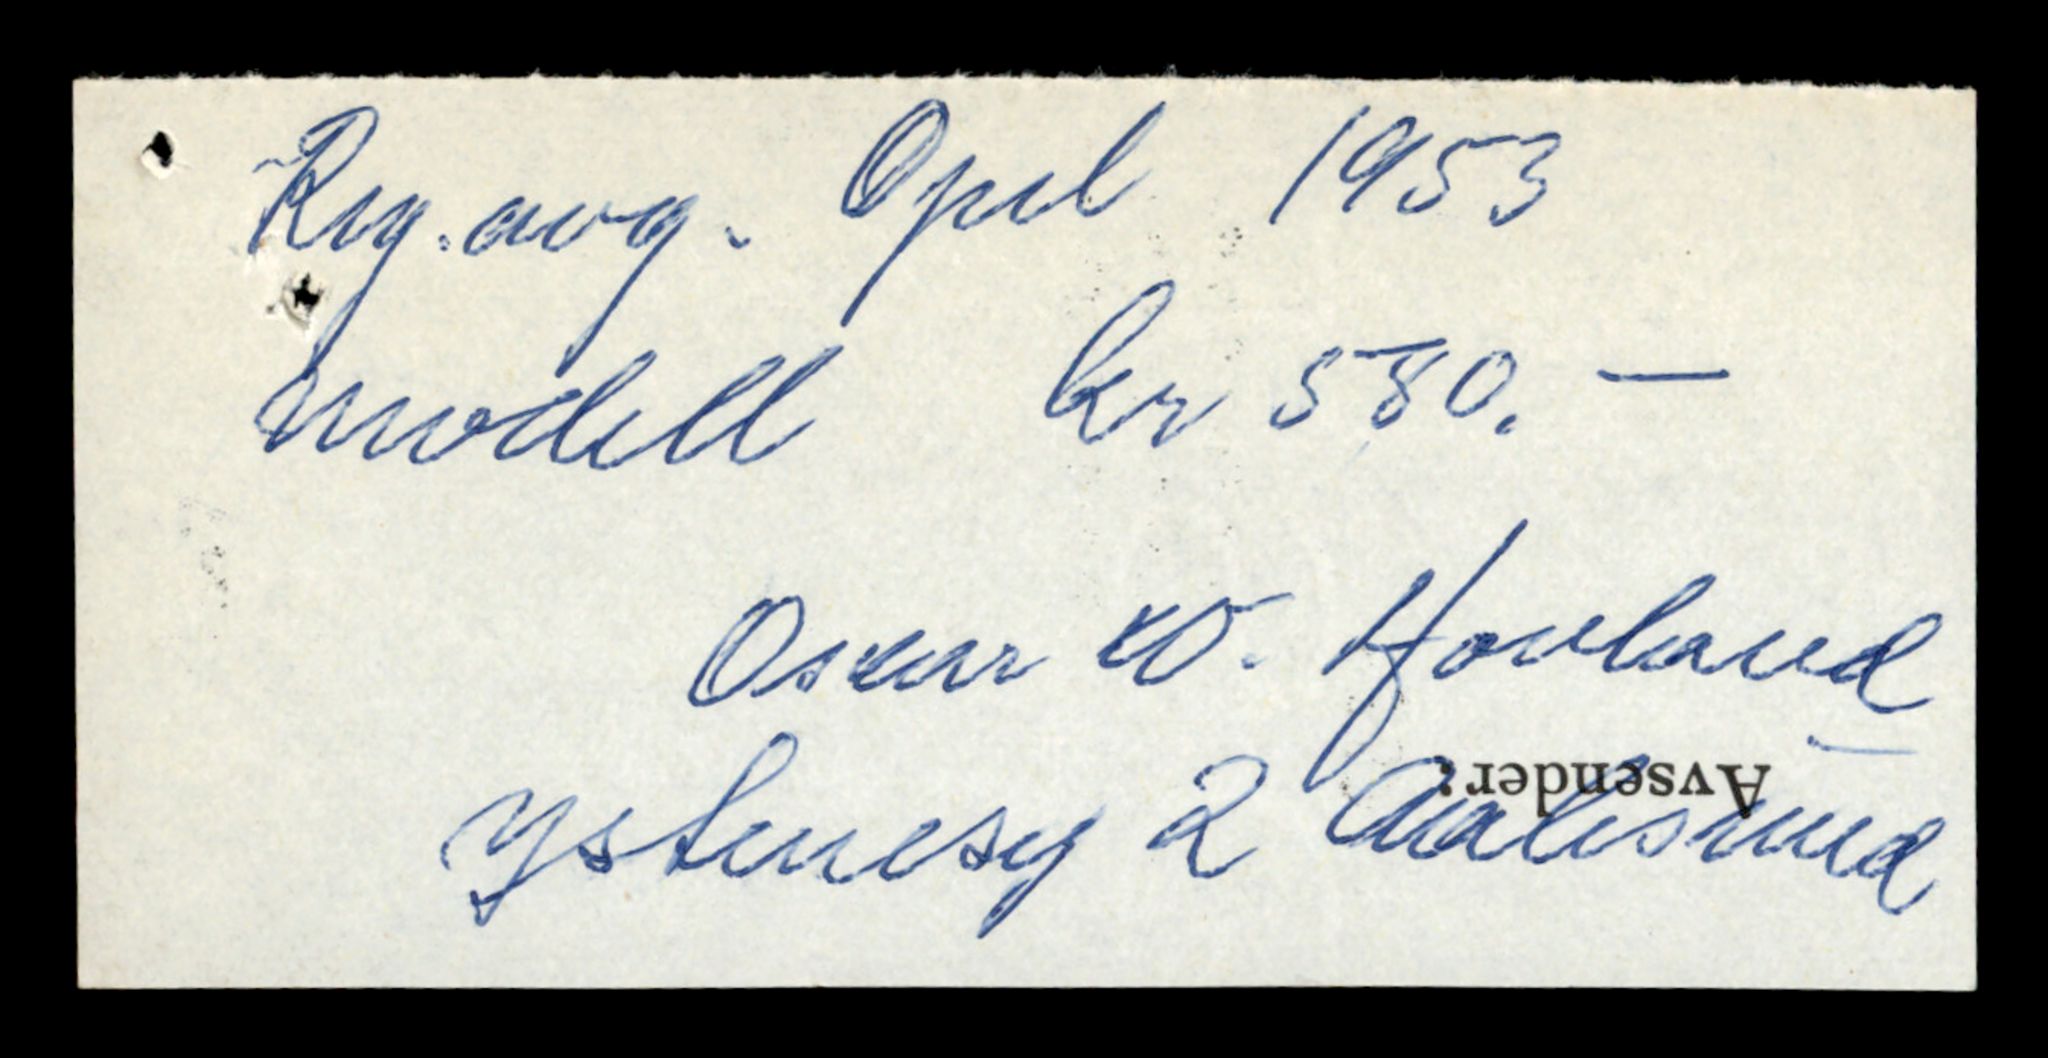 Reg. avg. Opel 1953
modell kr 580.—
Oscar W. Hovland
Ystenesg 2 Aalesund
Avsender: